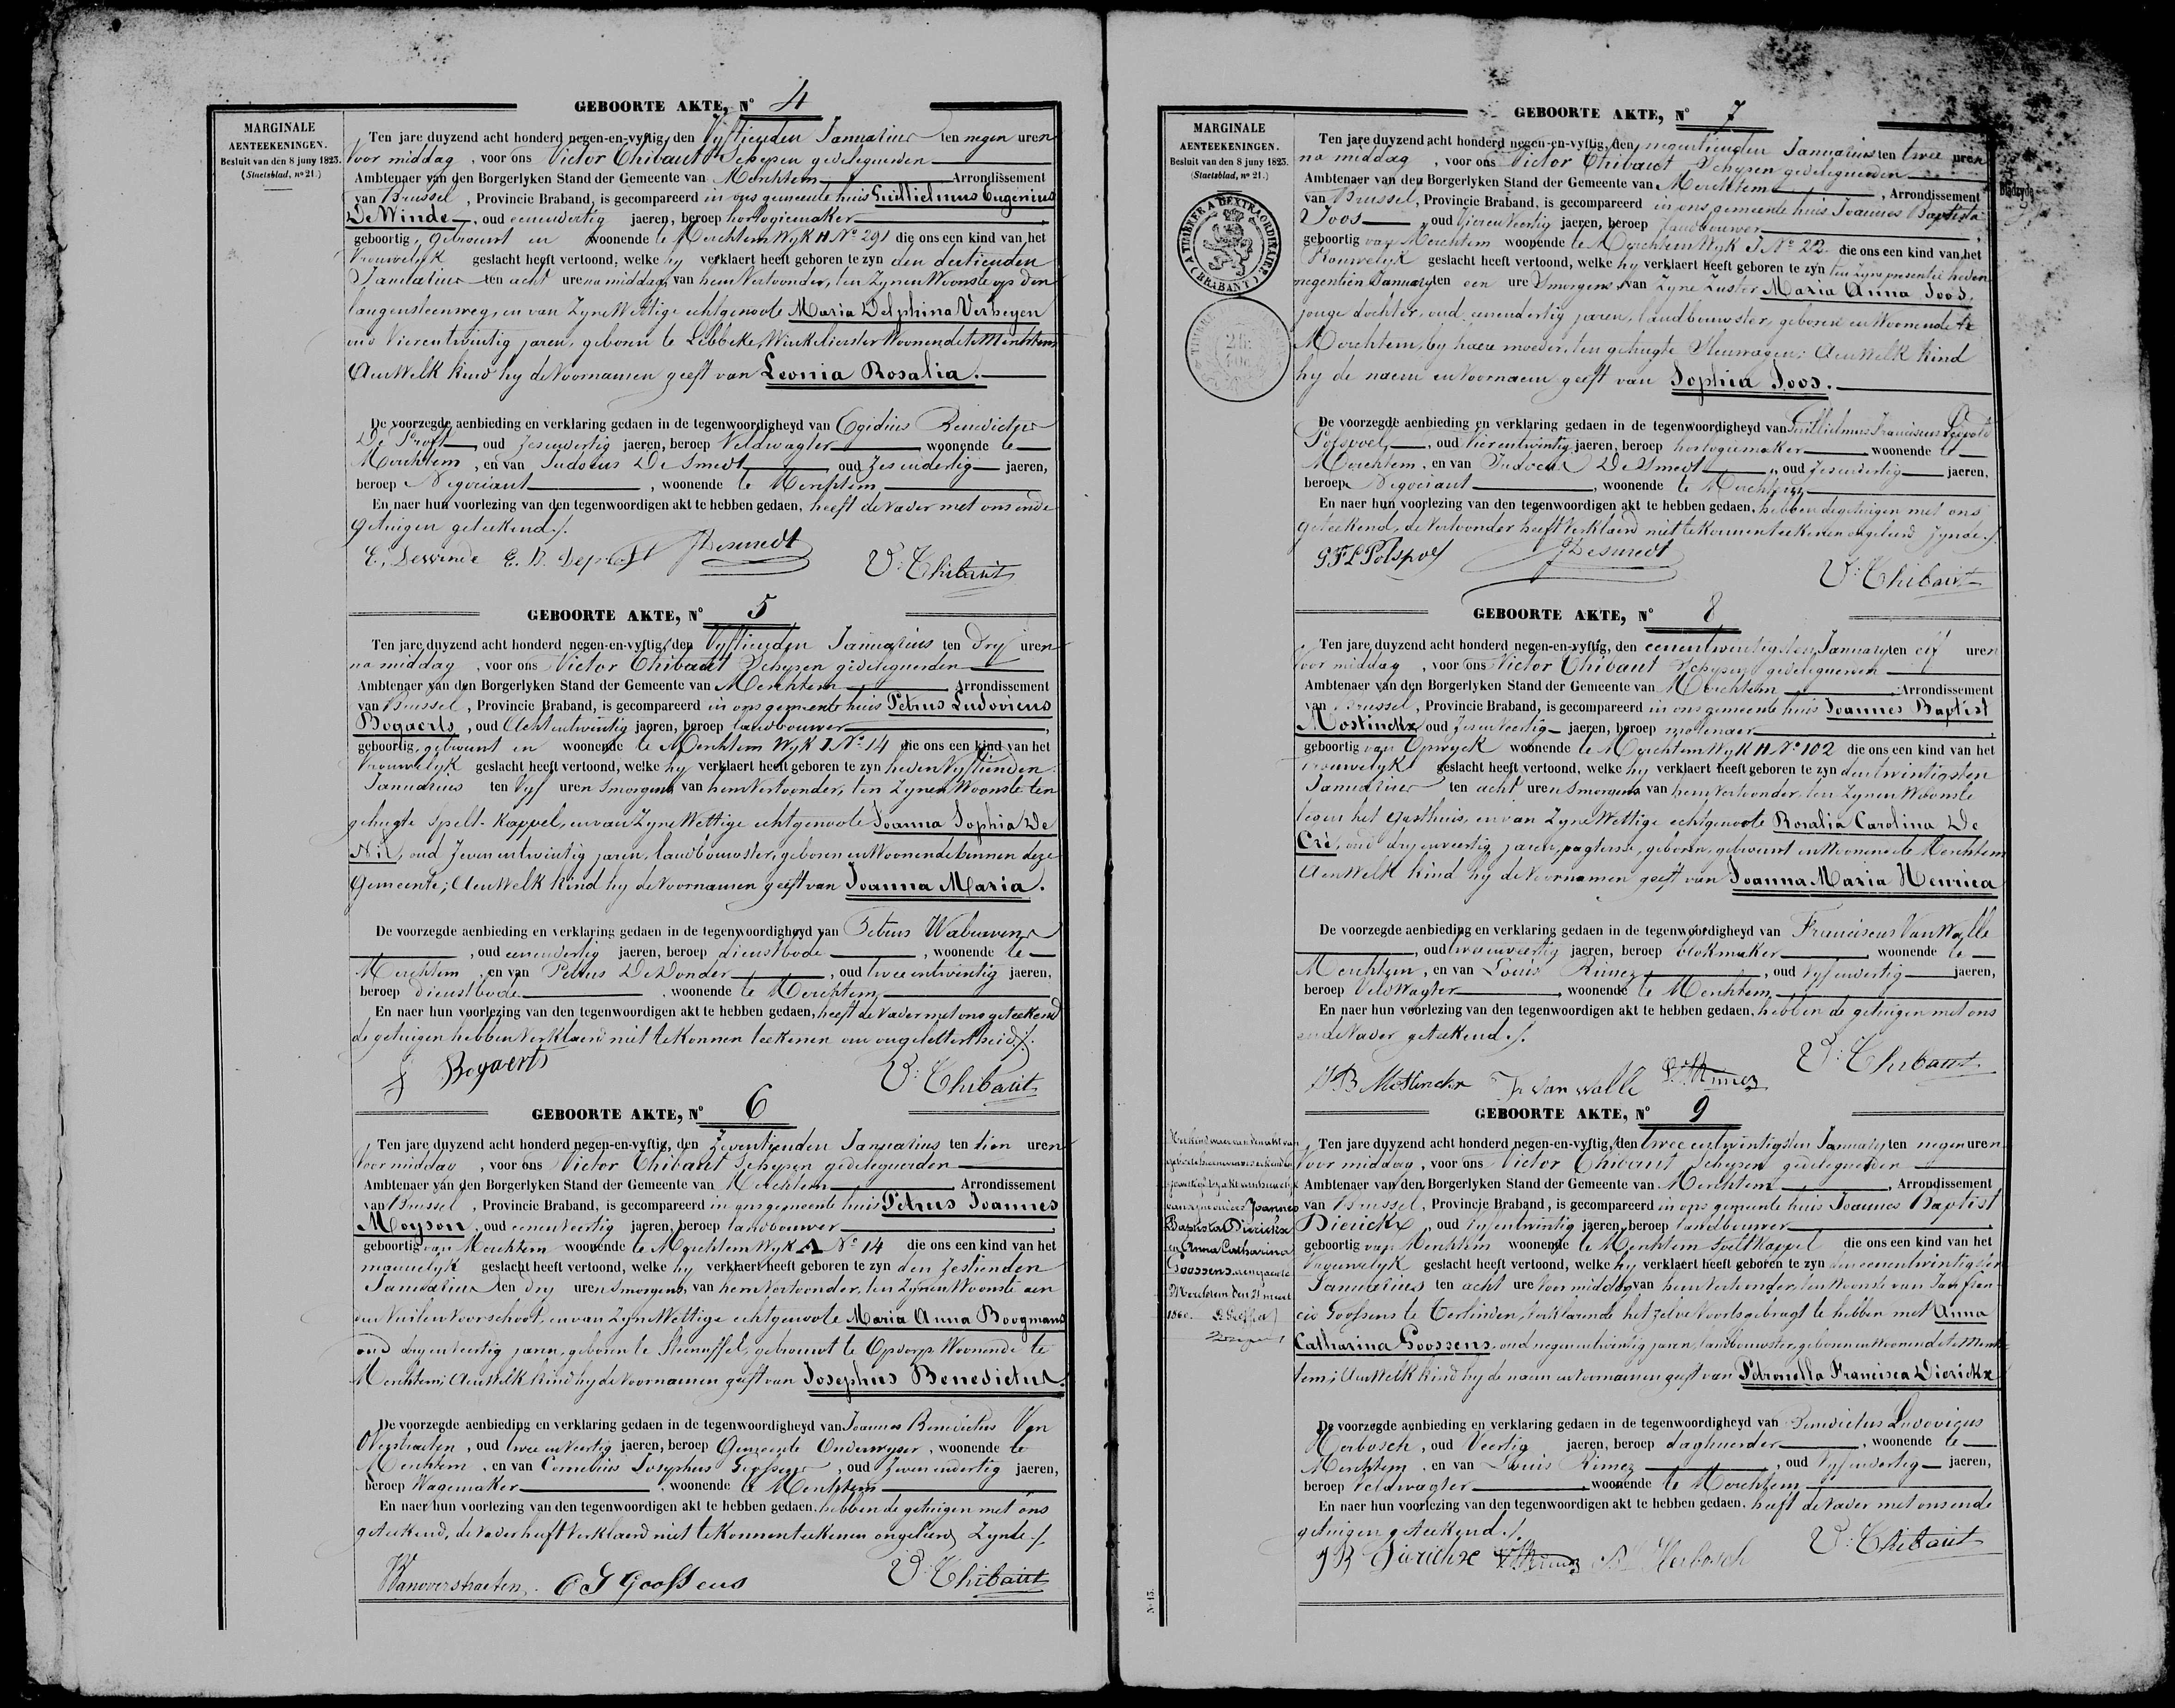 GEBOORTE AKTE, N° 4
MARGINALE
AENTEEKENINGEN.
Besluit van den 8 juny 1823.
(Staetsblad, n° 21.)
Ten jare duyzend acht honderd negen-en-vyftig, den Vyftienden Januarius ten negen uren
Voor middag , voor ons Victor Thibaut Schepen gedelegueerden
Ambtenaer van den Borgerlyken Stand der Gemeente van Merchtem Arrondissement
van Brussel , Provincie Braband, is gecompareerd in ons gemeente huis Guillielmus Eugenius
De Winde , oud eenendertig jaeren, beroep horlogiemaker
geboortig, gebrount en woonende te Merchtem Wyk H N° 291 die ons een kind van het
Vrouwelyk geslacht heeft vertoond, welke hy verklaert heeft geboren te zyn den dertienden
Januarius ten acht uren na middag, van hem Vertoonder, ten Zynen Woonste op den
langensteenweg, en van Zyne Wettige echtgenoote Maria Delphina Verheyen
oud Vierentwintig jaren, geboren te Lebbeke, Winkelierster Woonende te Merchtem,
Aen Welk kind hy de Voornamen geeft van Leonia Rosalia.
De voorzegde aenbieding en verklaring gedaen in de tegenwoordigheyd van Egidius Benedictus
De Proft oud Zesendertig jaeren, beroep Veldwagter woonende te
Merchtem , en van Judocus De Smedt oud Zesendertig jaeren,
beroep Negociant , woonende te Merchtem
En naer hun voorlezing van den tegenwoordigen akt te hebben gedaen, heeft de Vader met ons ende
getuigen geteekend./.
E. Dewinde E. B. Deproft J Desmedt V: Thibaut
GEBOORTE AKTE, N° 5
Ten jare duyzend acht honderd negen-en-vyftig, den Vyftienden Januarius ten Dry uren
na middag , voor ons Victor Thibaut Schepen gedelegueerden
Ambtenaer van den Borgerlyken Stand der Gemeente van Merchtem Arrondissement
van Brussel , Provincie Braband, is gecompareerd in ons gemeente huis Petrus Ludovicus
Bogaerts , oud Acht entwintig jaeren, beroep landbouwer
geboortig, gebrount en woonende te Merchtem Wyk J N° 14 die ons een kind van het
Vrouwelyk geslacht heeft vertoond, welke hy verklaert heeft geboren te zyn heden Vyftienden
Januarius ten Vyf uren Smorgens, van hem Vertoonder, ten Zynen Woonste ten
gehugte Spelt-Kappel, en van Zyne Wettige echtgenoote Joanna Sophia De
Nil, oud Zeven entwintig jaren, landbouwster, geboren en Woonende binnen deze
Gemeente; Aen Welk kind hy de Voornamen geeft van Joanna Maria.
De voorzegde aenbieding en verklaring gedaen in de tegenwoordigheyd van Petrus Walravens
, oud eenendertig jaeren, beroep dienstbode , woonende te
Merchtem , en van Petrus De Donder , oud twee entwintig jaeren,
beroep dienstbode , woonende te Merchtem
En naer hun voorlezing van den tegenwoordigen akt te hebben gedaen, heeft de Vader met ons geteekend
de getuigen hebben Verklaerd niet te Konnen teekenen om ongeletterdheid./.
Bogaerts V: Thibaut
GEBOORTE AKTE, N° 6
Ten jare duyzend acht honderd negen-en-vyftig, den Zeventienden Januarius ten tien uren
Voor middag , voor ons Victor Thibaut Schepen gedelegueerden
Ambtenaer van den Borgerlyken Stand der Gemeente van Merchtem Arrondissement
van Brussel , Provincie Braband, is gecompareerd in ons gemeente huis Petrus Joannes
Moyson , oud eenenveertig jaeren, beroep landbouwer
geboortig van Merchtem woonende te Merchtem Wyk A N° 14 die ons een kind van het
mannelyk geslacht heeft vertoond, welke hy verklaert heeft geboren te zyn den Zestienden
Januarius ten dry uren Smorgens, van hem Vertoonder, ten Zynen Woonste aen
den Vuilen Voorschoot, en van Zyne Wettige echtgenoote Maria Anna Boogmans
oud dry enveertig jaren, geboren te Steenuffel, gebrount te Opdorp Woonende te
Merchtem; Aen Welk kind hy de Voornamen geeft van Josephus Benedictus
De voorzegde aenbieding en verklaring gedaen in de tegenwoordigheyd van Joannes Benedictus Van
Overstraeten , oud twee en Veertig jaeren, beroep Gemeente Onderwyser , woonende te
Merchtem , en van Cornelius Josephus Goossens , oud Zeven endertig jaeren,
beroep Wagemaker , woonende te Merchtem
En naer hun voorlezing van den tegenwoordigen akt te hebben gedaen, hebben de getuigen met ons
geteekend, de Vader heeft Verklaerd niet te Konnen teekenen ongeleerd Zynde./.
Vanoverstraeten. C J Goossens V: Thibaut
GEBOORTE AKTE, N° 7
MARGINALE
AENTEEKENINGEN.
Besluit van den 8 juny 1823.
(Staetsblad, n° 21.)
A TIMBRER A L'EXTRAORDINAIRE
(BRABANT)
Bladzyde
Ten jare duyzend acht honderd negen-en-vyftig, den negentienden Januarius ten twee uren
na middag , voor ons Victor Thibaut Schepen gedelegueerden
Ambtenaer van den Borgerlyken Stand der Gemeente van Merchtem , Arrondissement
van Brussel , Provincie Braband, is gecompareerd in ons gemeente huis Joannes Baptista
Joos , oud Vieren Veertig jaeren, beroep landbouwer
geboortig van Merchtem woonende te Merchtem Wyk J N° 22 die ons een kind van het
Vrouwelyk geslacht heeft vertoond, welke hy verklaert heeft geboren te zyn ten Zyne presentie heden
negentien January ten een ure Smorgens, van Zyne Zuster Maria Anna Joos,
jonge dochter, oud eenendertig jaren, landbouwster, geboren en Woonende te
Merchtem, by haere moeder, ten gehugte Steenwagen; Aen Welk kind
hy de naem en Voornaem geeft van Sophia Joos.
De voorzegde aenbieding en verklaring gedaen in de tegenwoordigheyd van Guillielmus Franciscus Leopold
Polspoel , oud Vierentwintig jaeren, beroep horlogiemaker woonende te
Merchtem , en van Judocus De Smedt , oud Zesendertig jaeren,
beroep Negociant , woonende te Merchtem
En naer hun voorlezing van den tegenwoordigen akt te hebben gedaen, hebben de getuigen met ons
geteekend, de Vertoonder heeft Verklaerd niet te Konnen teekenen ongeleerd Zynde./.
G F L Polspoel J Desmedt V: Thibaut
GEBOORTE AKTE, N° 8
Ten jare duyzend acht honderd negen-en-vyftig, den eenentwintigsten January ten elf uren
Voor middag , voor ons Victor Thibaut Schepen gedelegueerden
Ambtenaer van den Borgerlyken Stand der Gemeente van Merchtem , Arrondissement
van Brussel , Provincie Braband, is gecompareerd in ons gemeente huis Joannes Baptist
Mostinckx oud Zesen Veertig jaeren, beroep molenaer
geboortig van Opwyck woonende te Merchtem Wyk H N° 102 die ons een kind van het
Vrouwelyk geslacht heeft vertoond, welke hy verklaert heeft geboren te zyn den twintigsten
Januarius ten acht uren Smorgens van hem Vertoonder, ten Zynen Woonste
tegen het Gasthuis, en van Zyne Wettige echtgenoote Rosalia Carolina De
Cré, oud dry enveertig jaren, pagtersse, geboren, gebrount en Woonende te Merchtem
Aen Welk kind hy de Voornamen geeft van Joanna Maria Henrica
De voorzegde aenbieding en verklaring gedaen in de tegenwoordigheyd van Franciscus Van Walle
, oud tweeenveertig jaeren, beroep blokmaker woonende te
Merchtem , en van Louis Rimez , oud Vyfendertig jaeren,
beroep Veldwagter , woonende te Merchtem
En naer hun voorlezing van den tegenwoordigen akt te hebben gedaen, hebben de getuigen met ons
ende Vader geteekend./.
J B Mostinckx Fr Van Walle L. Rimez V: Thibaut
GEBOORTE AKTE, N° 9
van Joannes
Baptista Dierickx
en Anna Catharina
Goossens
Merchtem den 21 maert
1860.
Ten jare duyzend acht honderd negen-en-vyftig, den twee entwintigsten January ten negen uren
Voor middag , voor ons Victor Thibaut Schepen gedelegueerden
Ambtenaer van den Borgerlyken Stand der Gemeente van Merchtem , Arrondissement
van Brussel , Provincie Braband, is gecompareerd in ons gemeente huis Joannes Baptist
Dierickx , oud Vyfentwintig jaeren, beroep landbouwer
geboortig van Merchtem woonende te Merchtem Speltkappel die ons een kind van het
Vrouwelyk geslacht heeft vertoond, welke hy verklaert heeft geboren te zyn den eenentwintigsten
Januarius ten acht ure Voor middag van hem Vertoonder, ten Woonste van Jan Fran
cis Goossens te Terlinden, Verklaerende het Zelve Voortsgebragt te hebben met Anna
Catharina Goossens, oud negenentwintig jaren, landbouwster, geboren en Woonende te Merch
tem; Aen Welk kind hy de naem en Voornamen geeft van Petronella Francisca Dierickx
De voorzegde aenbieding en verklaring gedaen in de tegenwoordigheyd van Benedictus Ludovicus
Herbosch , oud Veertig jaeren, beroep daghuerder , woonende te
Merchtem , en van Louis Rimez , oud Vyfendertig jaeren,
beroep Veldwagter , woonende te Merchtem
En naer hun voorlezing van den tegenwoordigen akt te hebben gedaen, heeft de Vader met ons ende
getuigen geteekend./.
J B Dierickx L Rimez B L Herbosch V: Thibaut
N° 15.